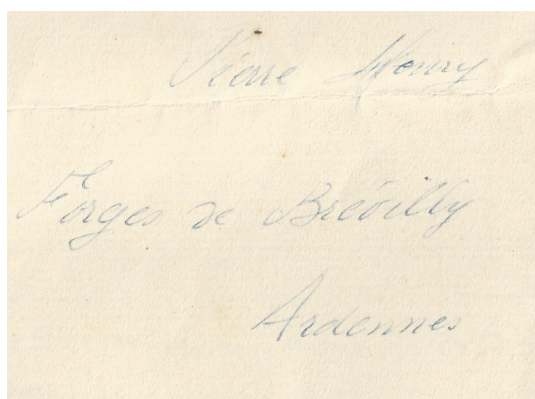 Pierre Henry
Forges de Brévilly
Ardennes